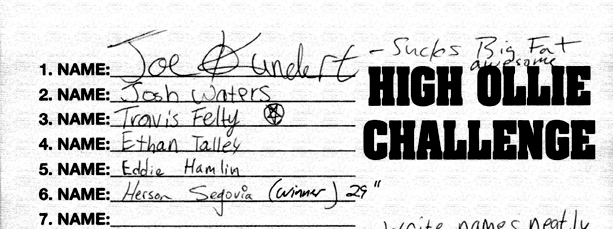 1. NAME: Joe Kundert - Sucks Big Fat
awesome
2. NAME: Josh Waters
HIGH OLLIE
3. NAME: Travis Felty
CHALLENGE
4. NAME: Ethan Talley
5. NAME: Eddie Hamlin
6. NAME: Herson Segovia (winner) 29"
7. NAME:
write names neatly